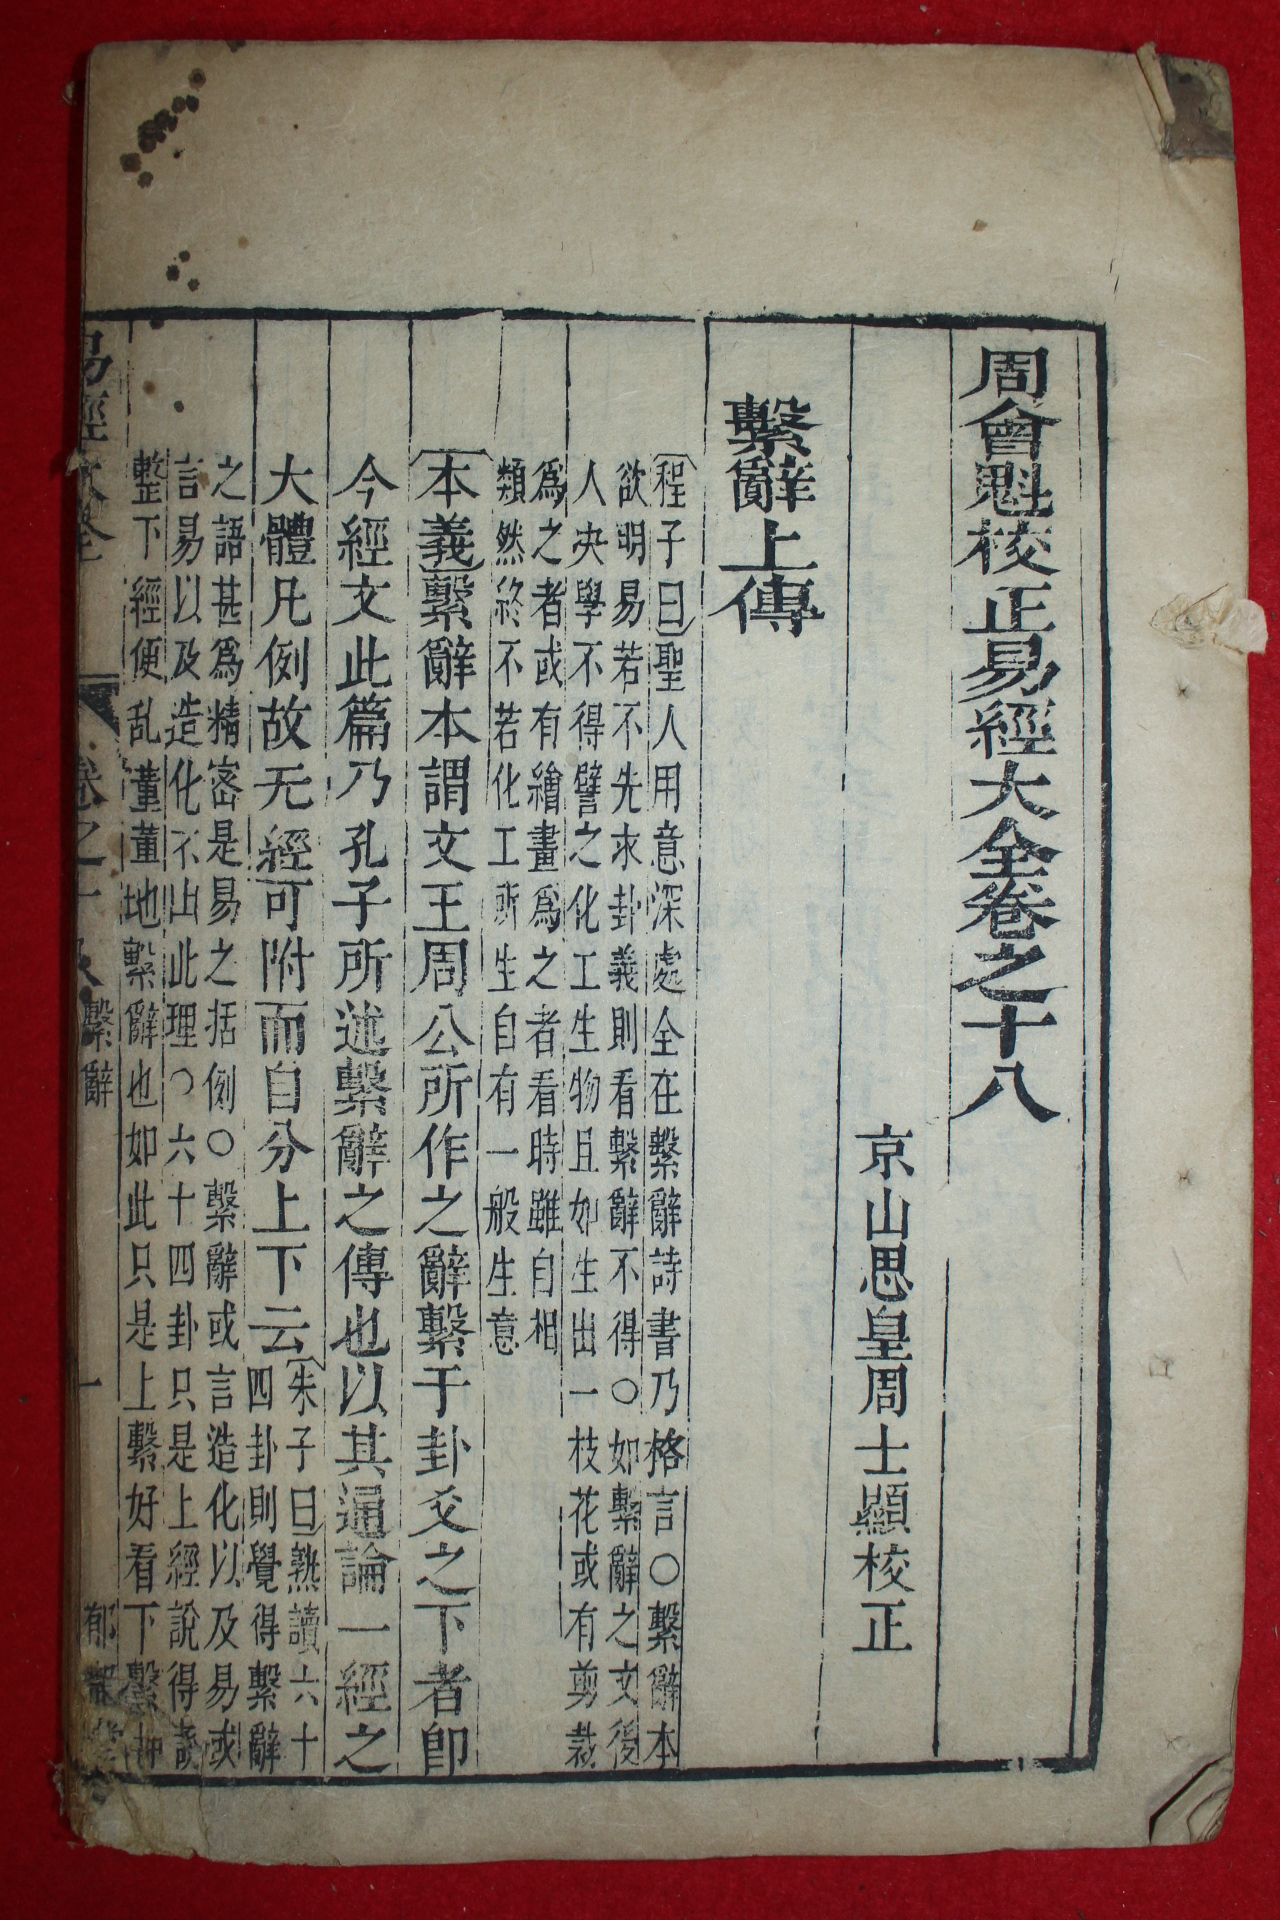 周會魁校正易經大全卷之十八
京山思皇周士顯校正
繫辭上傳
程子曰聖人用意深處全在繫辭詩書乃格言○繫辭本
欲明易若不先求卦義則看繫辭不得○如繫辭之文後
人决學不得譬之化工生物且如生出一枝花或有剪裁
爲之者或有繪畫爲之者看時雖自相
類然終不若化工所生自有一般生意
本義繫辭本謂文王周公所作之辭繫于卦爻之下者卽
今經文此篇乃孔子所述繫辭之傳也以其通論一經之
大體凡例故无經可附而自分上下云
朱子曰熟讀六十
四卦則覺得繫辭
之語甚爲精密是易之括例○繫辭或言造化以及易或
言易以及造化不出此理○六十四卦只是上經說得齊
整下經便乱董董地繫辭也如此只是上繫好看下繫
易經大全
卷之十八
繫辭
一
郁郁堂